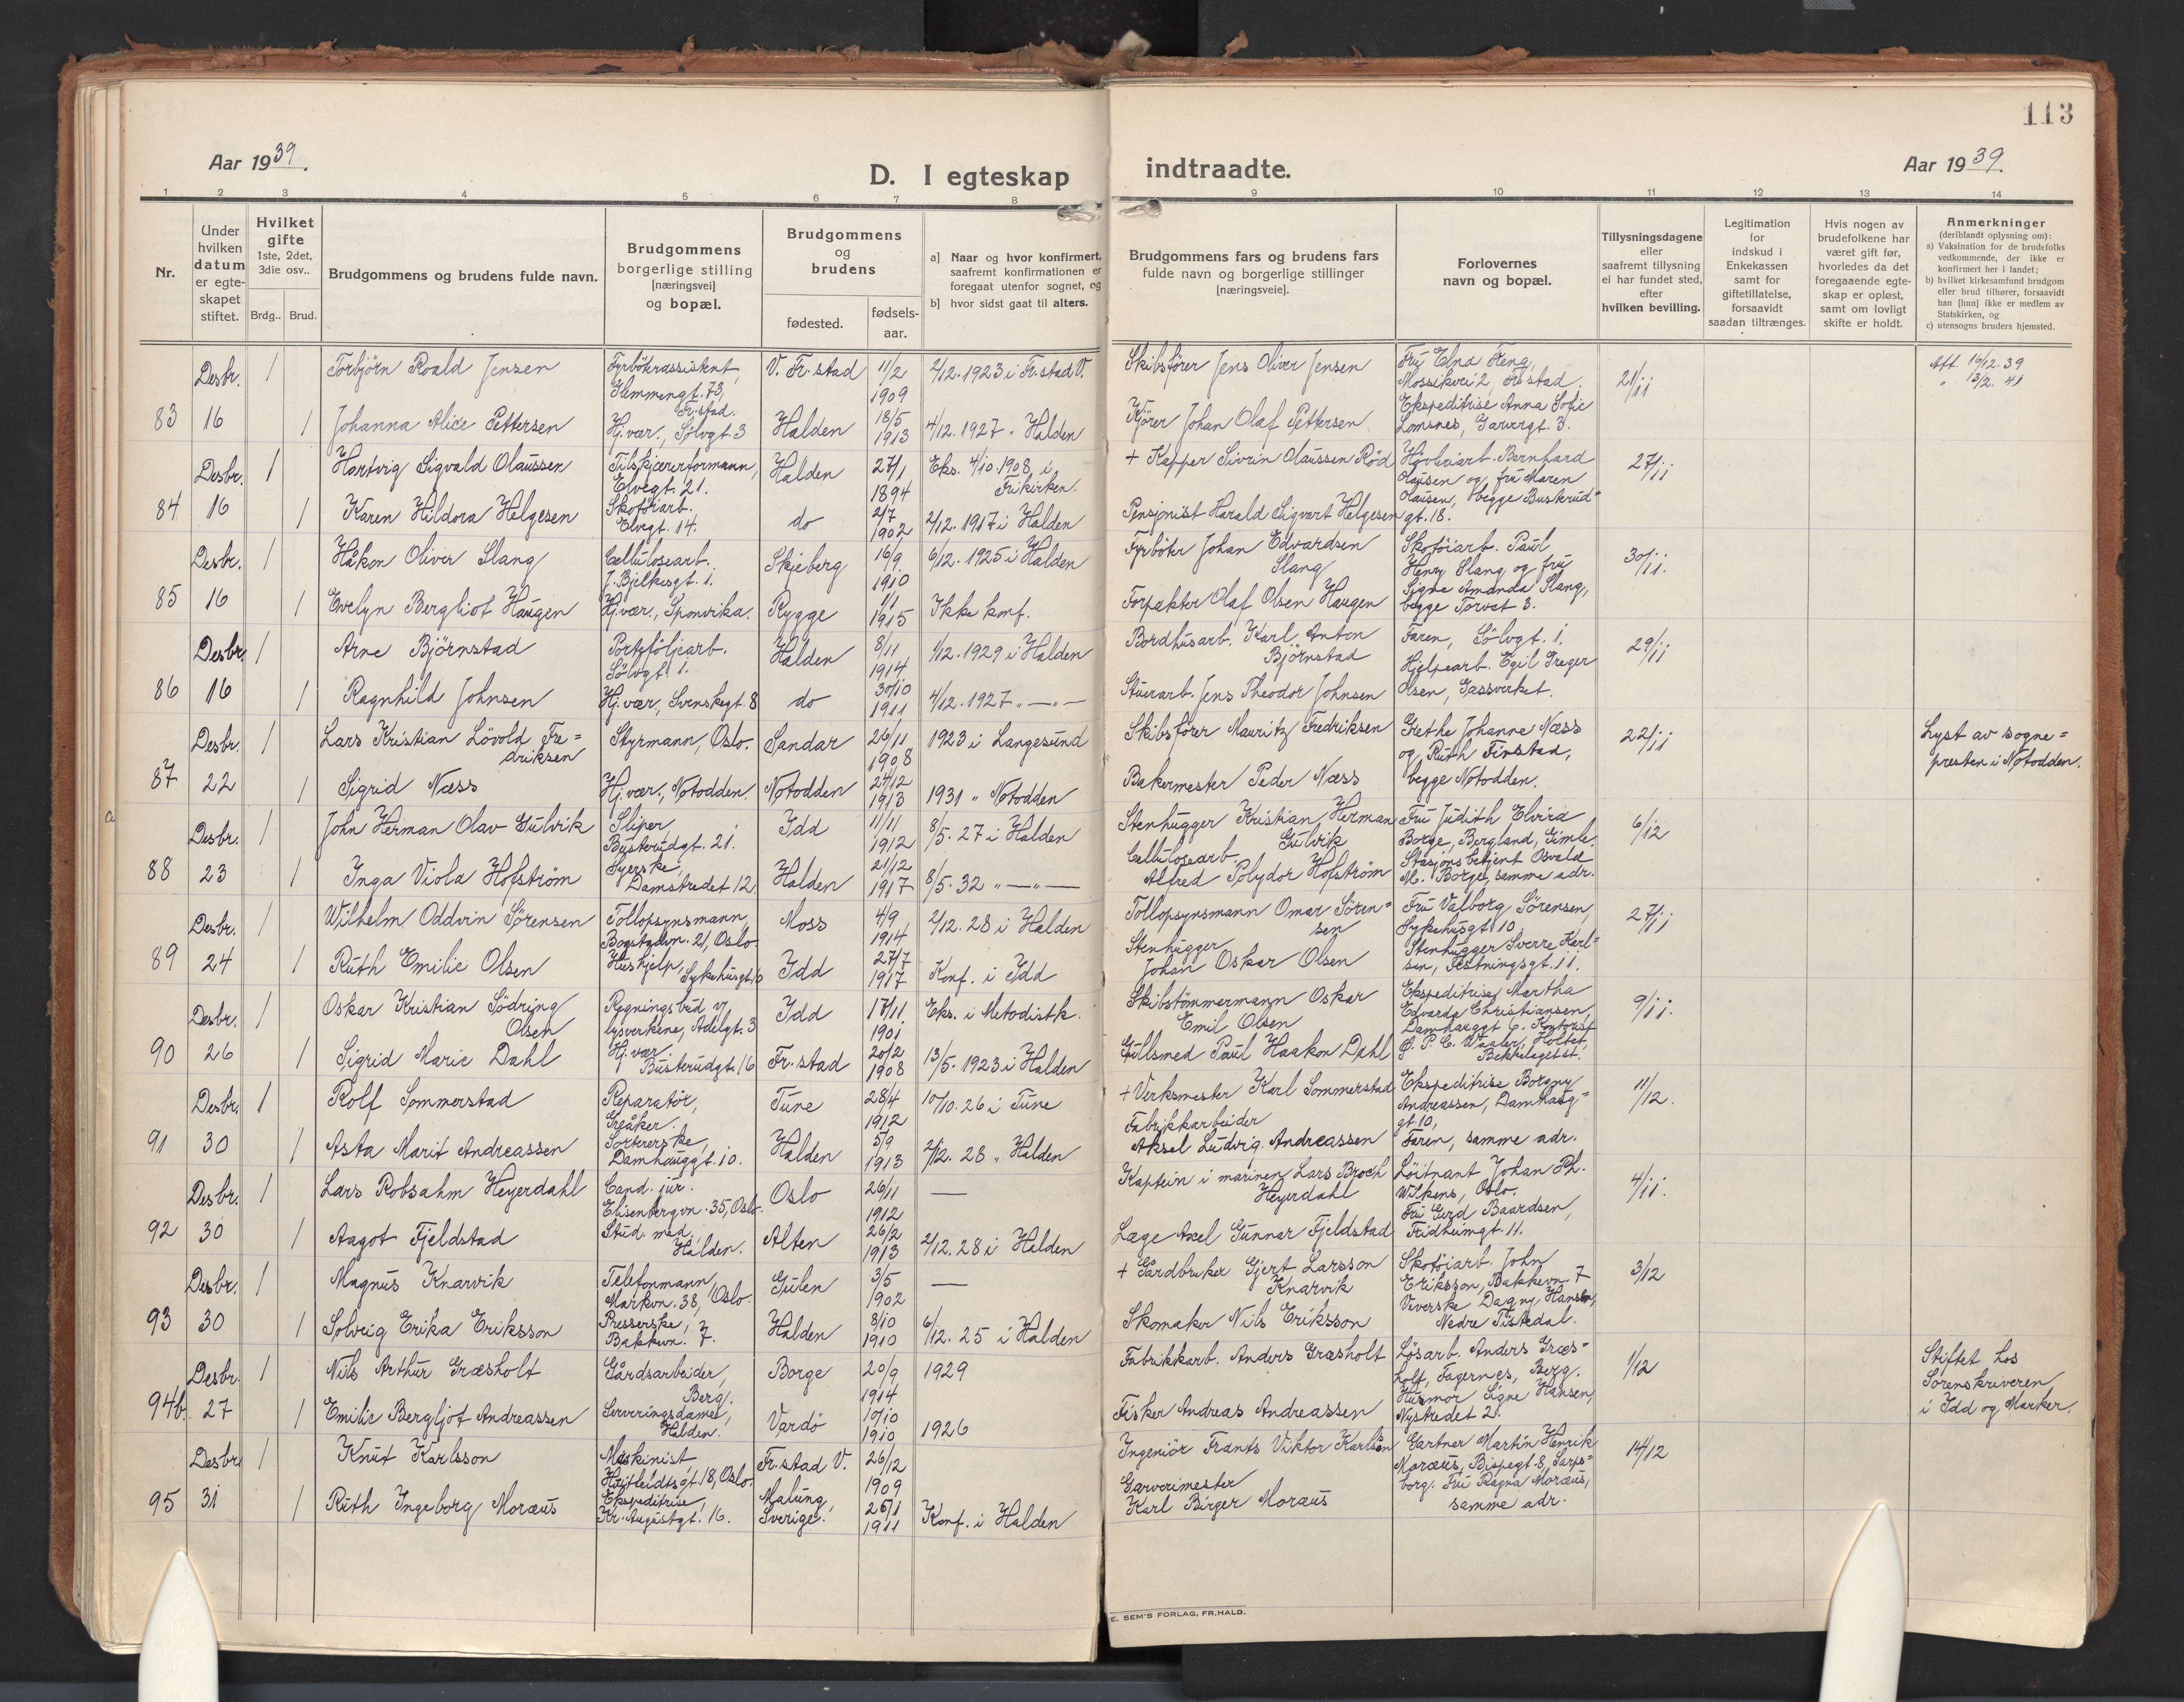 113
Aar 1939.
D. I egteskap indtraadte.
Aar 1939.
1 2 3 4 5 6 7 8 9 10 11 12 13 14
Nr.
Under hvilken datum er egte-skapet stiftet.
Hvilket gifte 1ste, 2det, 3die osv..
Brdg.. Brud.
Brudgommens og brudens fulde navn.
Brudgommens borgerlige stilling [næringsvei] og bopæl.
Brudgommens og brudens
fødested.
fødsels-aar.
a] Naar og hvor konfirmert, saafremt konfirmationen er foregaat utenfor sognet, og
b] hvor sidst gaat til alters.
Brudgommens fars og brudens fars fulde navn og borgerlige stillinger [næringsveie].
Forlovernes navn og bopæl.
Tillysningsdagene eller saafremt tillysning ei har fundet sted, efter hvilken bevilling.
Legitimation for indskud i Enkekassen samt for giftetillatelse, forsaavidt saadan tiltrænges.
Hvis nogen av brudefolkene har været gift før, hvorledes da det foregaaende egte-skap er opløst, samt om lovligt skifte er holdt.
Anmerkninger (deriblandt oplysning om):
a) Vaksination for de brudefolks vedkommende, der ikke er konfirmert her i landet;
b) hvilket kirkesamfund brudgom eller brud tilhører, forsaavidt han [hun] ikke er medlem av Statskirken, og
c) utensogns bruders hjemsted.
Desbr. 1 Torbjörn Roald Jensen Fyrbökerassistent, Glemmengt. 73, Fr.stad. V. Fr.stad 11/2 1909 2/12. 1923 i Fr.stad V. Skibsfører Jens Oliver Jensen Fru Elna Feng, Mossikvei 2, Fr.stad. 21/11 Att. 16/12. 39 " 13/2. 41
83 16 1 Johanna Alice Pettersen Hj.vær., Sølvgt. 3 Halden 18/5 1913 4/12. 1927 " Halden Kjører Johan Olaf Pettersen Ekspeditrise Anna Sofie Lomsnes, Garvergt. 3.
Desbr. 1 Hartvig Sigvald Olaussen Tilskjærerformann, Elvegt. 21. Halden 27/1 1894 Eks. 4/10. 1908, i Frikirken. + Kapper Sivrin Olaussen Röd Høvleriarb. Bernhard Olausen og fru Maren Olausen, begge Buskrud= 27/11
84 16 1 Karen Hildora Helgesen Skotöiarb. Elvegt. 14. do 2/7 1902 2/12. 1917 i Halden Pensjonist Harald Sigvart Helgesen gt. 18.
Desbr. 1 Håkon Oliver Slang Cellulosearb. J. Bjelkesgt. 1. Skjeberg 16/9. 1910 6/12. 1925 i Halden Fyrböter Johan Edvardsen Slang Skotöiarb. Paul Henry Slang og fru 30/11.
85 16 1 Evelyn Bergliot Haugen Hj.vær., Sponvika. Rygge 1/1 1915 Ikke konf. Forpakter Olaf Olsen Haugen Signe Amanda Slang, begge Torvet 3.
Desbr. 1 Arne Björnstad Porteföljearb. Sölvgt. 1. Halden 8/11 1914 1/12. 1929 i Halden Bordhusarb. Karl Anton Björnstad Faren, Sölvgt. 1. 29/11
86 16 1 Ragnhild Johnsen Hj.vær, Svenskegt. 8 do 30/10 1911 4/12. 1927 "—"— Stuerarb. Jens Theodor Johnsen Hjelpearb. Egil Greger Olsen, Gassverket.
Desbr. 1 Lars Kristian Lövold Fre=driksen Styrmann, Oslo. Sandar 26/11 1908 1923 i Langesund Skibsfører Mauritz Fredriksen Grethe Johanne Næss og Ruth Tinstad, 22/11 Lyst av sogne=presten i Notodden.
87 22 1 Sigrid Næss Hj.vær., Notodden. Notodden 24/12 1913 1931 " Notodden Bakermester Peder Næss begge Notodden.
Desbr. 1 John Herman Olav Gulvik Sliper, Busterudgt. 21. Idd 11/11 1912 8/5. 27 i Halden Stenhugger Kristian Herman Gulvik Fru Judith Elvira Borge, Bergland, Gimle. 6/12
88 23 1 Inga Viola Hofström Syerske, Damstredet 12. Halden 21/12 1917 8/5. 32 "—"— Cellulosearb. Alfred Polydor Hofström Stasjonsbetjent Osvald M. Borge, samme adr.
Desbr. 1 Wilhelm Oddvin Sørensen Tollopsynsmann, Bogstadvn. 21, Oslo Moss 4/9 1914 2/12. 28 i Halden Tollopsynsmann Omar Sören=sen Fru Valborg Sørensen, Sykehusgt 10. 27/11
89 24 1 Ruth Emilie Olsen Hushjelp, Sykehusgt. 10 Idd 27/7 1917 Konf. i Idd Stenhugger Johan Oskar Olsen Stenhugger Sverre Karl=sen, Festningsgt. 11.
Desbr. 1 Oskar Kristian Södring Olsen Regningsbud v/ lysverkene, Adelgt. 3 Idd 17/11. 1901 Eks. i Metodistk. Skibstömmermann Oskar Emil Olsen Ekspeditrise Martha Edvarda Christiansen, Damhauggt 6. Kontorist 9/11.
90 26 1 Sigrid Marie Dahl Hj.vær. Busterudgt. 16 Fr.stad 20/2 1908 13/5. 1923 i Halden Gullsmed Paul Haakon Dahl P. C. Waaler, Holtet, Bekkelagetst.
Desbr. 1 Rolf Sommerstad Reparatör, Greåker. Tune 28/4 1912 10/10. 26 i Tune + Verksmester Karl Sommerstad Ekspeditrise Borgny Andreassen, Damhaug=gt. 10, 11/12.
91 30 1 Asta Marit Andreassen Sortererske, Damhauggt. 10. Halden 5/9 1913 2/12. 28 " Halden Fabrikkarbeider Aksel Ludvig Andreassen Faren, samme adr.
Desbr. 1 Lars Robsahm Heyerdahl Cand. jur. Elisenbergvn. 35, Oslo. Oslo 26/11 1912 — Kaptein i marinen Lars Broch Heyerdahl Löitnant Johan Ph. Wilkens, Oslo. 4/11.
92 30 1 Aagot Fjeldstad Stud. med., Halden. Alten 26/2 1913 2/12. 28 i Halden Læge Axel Gunnar Fjeldstad Fru Gerd Baardsen, Fridheimgt. 11.
Desbr. 1 Magnus Knarvik Telefonmann Markvn. 38, Oslo. Gulen 3/5 1902 — + Gårdbruker Gjert Larsson Knarvik Skotöiarb. John Eriksson, Bakkevn. 7 3/12
93 30 1 Solveig Erika Eriksson Presserske, Bakkevn. 7. Halden 8/10 1910 6/12. 25 i Halden Skomaker Nils Eriksson Veverske Dagny Hansen, Nedre Tistedal.
Desbr. 1 Nils Arthur Græsholt Gårdsarbeider, Berg. Borge 20/9 1914 1929 Fabrikkarb. Anders Græsholt Løsarb. Anders Græs=holt, Fagernes, Berg. 1/12 Stiftet hos Sorenskriveren i Idd og Marker.
94b. 27 1 Emilie Bergljot Andreassen Serveringsdame, Halden. Vardö 10/10 1910 1926 Fisker Andreas Andreassen Husmor Signe Hansen, Nystredet 2.
Desbr. 1 Knut Karlsson Maskinist Oslo. Fr.stad V. 26/12 1909 Ingeniör Frants Viktor Karlsson Gartner Martin Henrik Moræus, Bispegt. 8, Sarps=borg. 14/12
95 31 1 Ruth Ingeborg Moræus Ekspeditrise, Kr. Augustgt. 16. Malung, Sverige. 25/1 1911 Konf. i Halden Garverimester Karl Birger Moræus Fru Ragna Moræus, samme adr.
E. SEM'S FORLAG, FR.HALD.